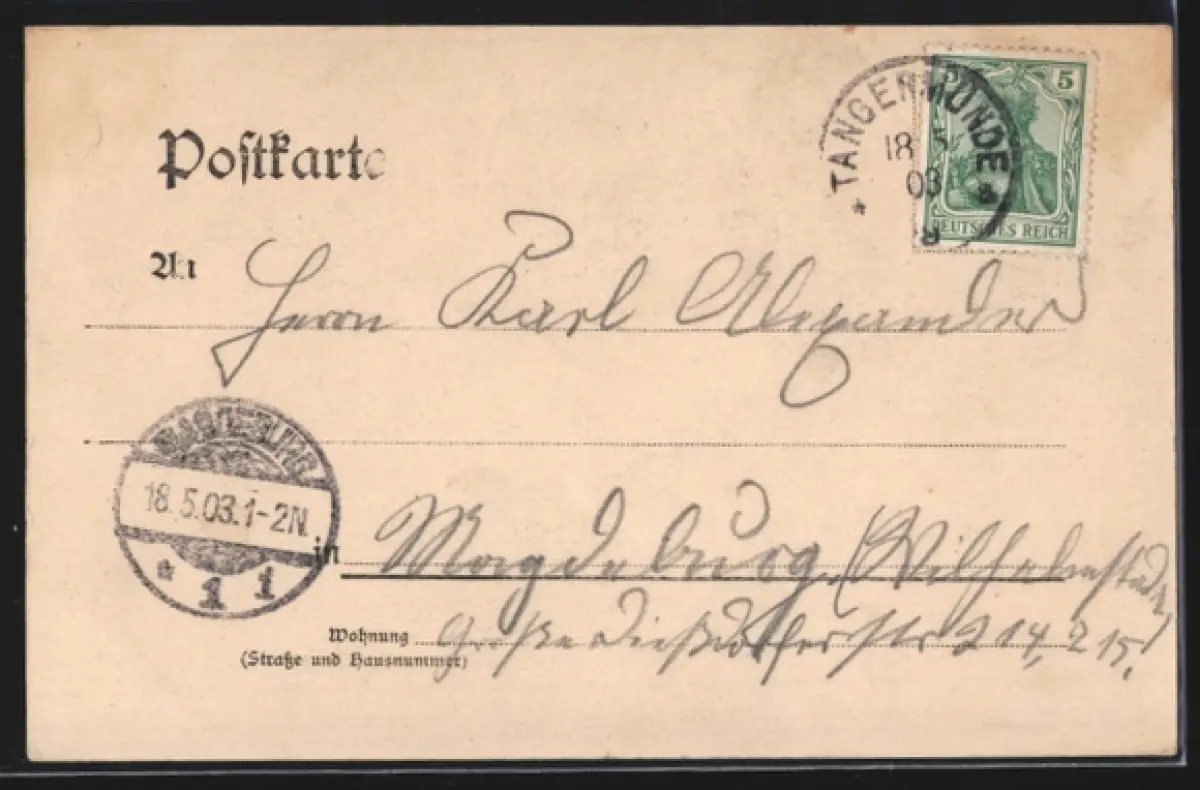 Postkarte
5
TANGERMÜNDE
18 5
03
a
DEUTSCHES REICH
An
Herrn Karl Alexander
MAGDEBURG
18.5.03.1-2N.
* 1 1
in Magdeburg, (Wilhelmstadt)
Wohnung Große Diesdorferstr 214, 2
(Straße und Hausnummer)